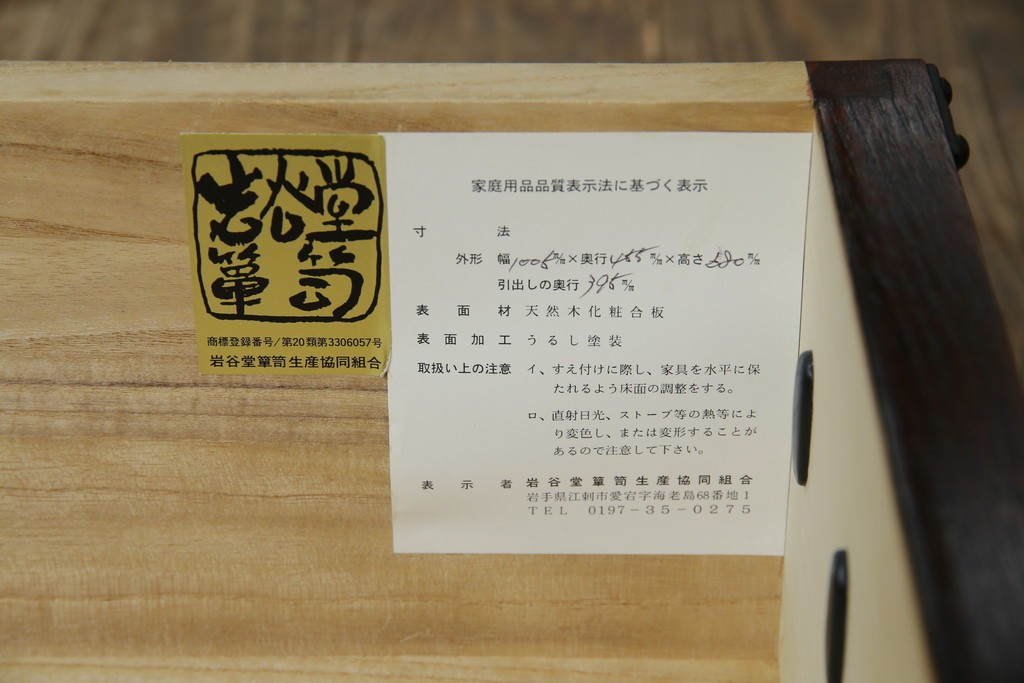 岩谷堂
簞笥
商標登録番号/第20類第3306057号
岩谷堂簞笥生産協同組合
家庭用品品質表示法に基づく表示
寸法
外形 幅1005m/m×奥行455m/m×高さ580m/m
引出しの奥行 395m/m
表面材 天然木化粧合板
表面加工 うるし塗装
取扱い上の注意 イ、すえ付けに際し、家具を水平に保
たれるよう床面の調整をする。
ロ、直射日光、ストーブ等の熱等によ
り変色し、または変形することが
あるので注意して下さい。
表示者 岩谷堂簞笥生産協同組合
岩手県江刺市愛宕字海老島68番地1
TEL 0197-35-0275